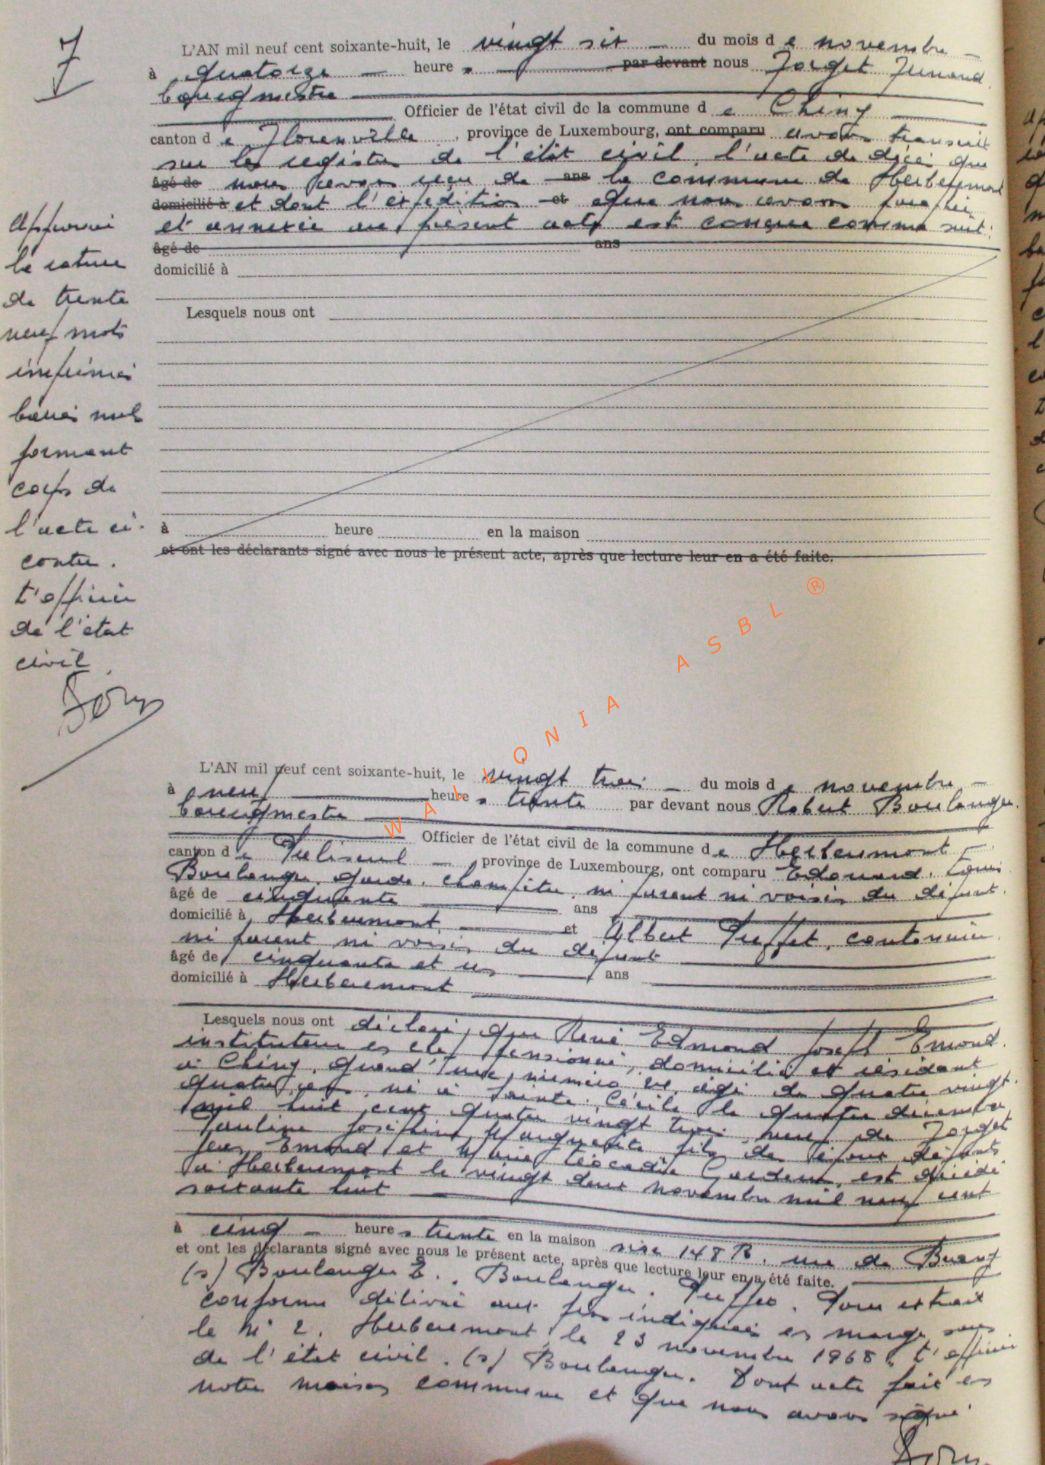 7
L'AN mil neuf cent soixante-huit, le vingt six du mois de novembre
à quatorze heures par devant nous Forget Fernand
bourgmestre
Officier de l'état civil de la commune de Chiny
canton de Florenville, province de Luxembourg, ont comparu avons transcrit
sur le registre de l'état civil, l'acte de décès que
âgé de nous avons reçu de ans la commune de Herbeumont
domicilié à et dont l'expédition et que nous avons
et annexée au présent acte est conçue comme suit:
âgé de ans
domicilié à
Lesquels nous ont
à heure en la maison
et ont les déclarants signé avec nous le présent acte, après que lecture leur en a été faite.
Approuvé
la rature
de trente
neuf mots
imprimés
barrés nuls
formant
corps de
l'acte ci-
contre.
L'officier
de l'état
civil
WALLONIA ASBL ®
L'AN mil neuf cent soixante-huit, le vingt trois du mois de novembre
à neuf heures trente par devant nous Robert Boulanger
bourgmestre
Officier de l'état civil de la commune de Herbeumont
canton de Paliseul province de Luxembourg, ont comparu Edouard Louis
Boulanger, garde champêtre, ni parent ni voisin du défunt,
âgé de cinquante ans
domicilié à Herbeumont et Albert Puffet, cantonnier
ni parent ni voisin du défunt
âgé de cinquante et un ans
domicilié à Herbeumont
Lesquels nous ont déclaré que René Edmond Joseph Emond,
instituteur en chef pensionné, domicilié et résidant
à Chiny, Grand'Rue, numéro âgé de quatre vingt
quatre ans, né à Sainte Cécile le quatre décembre
mil huit cent quatre vingt trois veuf de Forget
Pauline Joséphine Marguerite fils de époux défunts
Emond et Marie Léocadie est décédé
à Herbeumont le vingt deux novembre mil neuf cent
soixante huit
à cinq heures trente en la maison sise 148 B. rue de
et ont les déclarants signé avec nous le présent acte, après que lecture leur en a été faite.
(s) Boulanger E., Boulanger. Puffet. Pour extrait
conforme délivré aux fins indiquées en marge sous
le N° 2. Herbeumont, le 23 novembre 1968, L'officier
de l'état civil. (s) Boulanger. Dont acte fait en
notre maison commune et que nous avons signé.